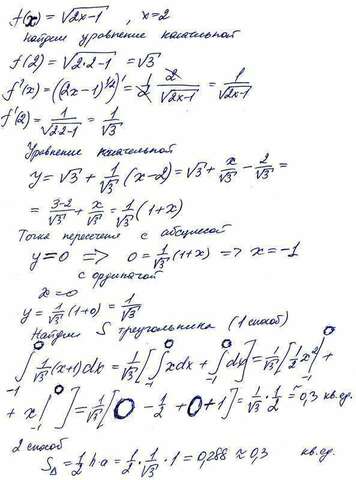 f(x) = √(2x-1) , x=2
Найдём уравнение касательной
f(2) = √(2·2-1) = √3
f'(x) = ((2x-1)^(1/2))' = 1/2 · 2/√(2x-1) = 1/√(2x-1)
f'(2) = 1/√(2·2-1) = 1/√3
Уравнение касательной
y = √3 + 1/√3 (x-2) = √3 + x/√3 - 2/√3 =
= (3-2)/√3 + x/√3 = 1/√3 (1+x)
Точка пересечения с абсциссой
y=0 => 0 = 1/√3 (1+x) => x = -1
с ординатой
x=0
y = 1/√3 (1+0) = 1/√3
Найдём S треугольника (1 способ)
∫_{-1}^{0} 1/√3 (x+1)dx = 1/√3 [∫_{-1}^{0} xdx + ∫_{-1}^{0} dx] = 1/√3 [1/2 x² |_{-1}^{0} +
+ x |_{-1}^{0} ] = 1/√3 [0 - 1/2 + 0 + 1] = 1/√3 · 1/2 ≈ 0,3 кв.ед.
2 способ
S_Δ = 1/2 h·a = 1/2 · 1/√3 · 1 = 0,288 ≈ 0,3 кв.ед.